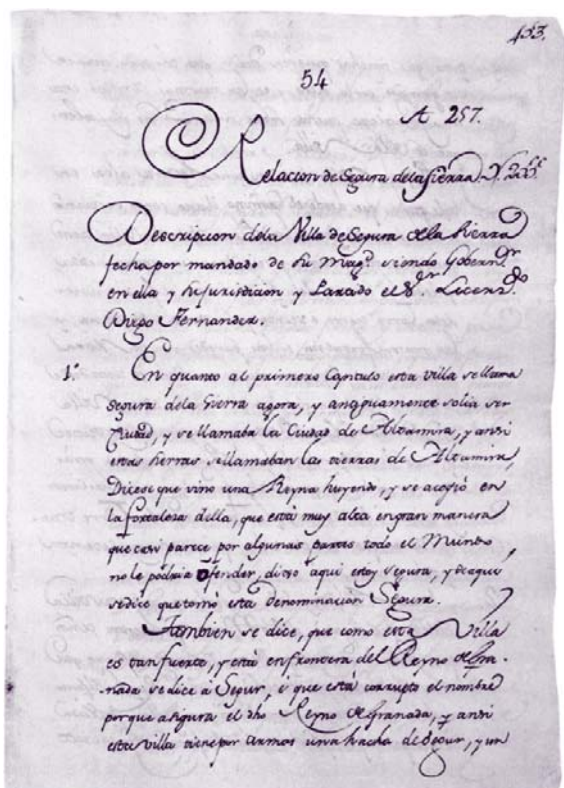 453.
54
A 257.
Relacion de Segura de la Sierra.
Descripcion dela Villa de Segura dela Sierra
fecha por mandado de su Magd. siendo Goberndr.
en ella y su jurisdicion y Partido el Sr. Licendo.
Diego Fernandez.
1º En quanto al primero Capitulo esta villa se llama
Segura dela Sierra agora, y antiguamente solia ser
Ciudad, y se llamaba la Ciudad de Altamira, y ansi
estas tierras se llamaban las tierras de Altamira,
Dicese que vino una Reyna huyendo, y se acogió en
la fortaleza della, que está muy alta en gran manera
que casi parece por algunas partes todo el Mundo
no le podria ofender, dixo aqui estoy segura, y de aqui
se dice que tomó esta denominacion Segura.
Tambien se dice, que como esta Villa
es tan fuerte, y está en frontera del Reyno de Gra-
nada se dice a Segur, e que está corrupto el nombre
porque asigura el dho Reyno de Granada, y ansi
esta villa tiene por armas una hacha de Segur, y un